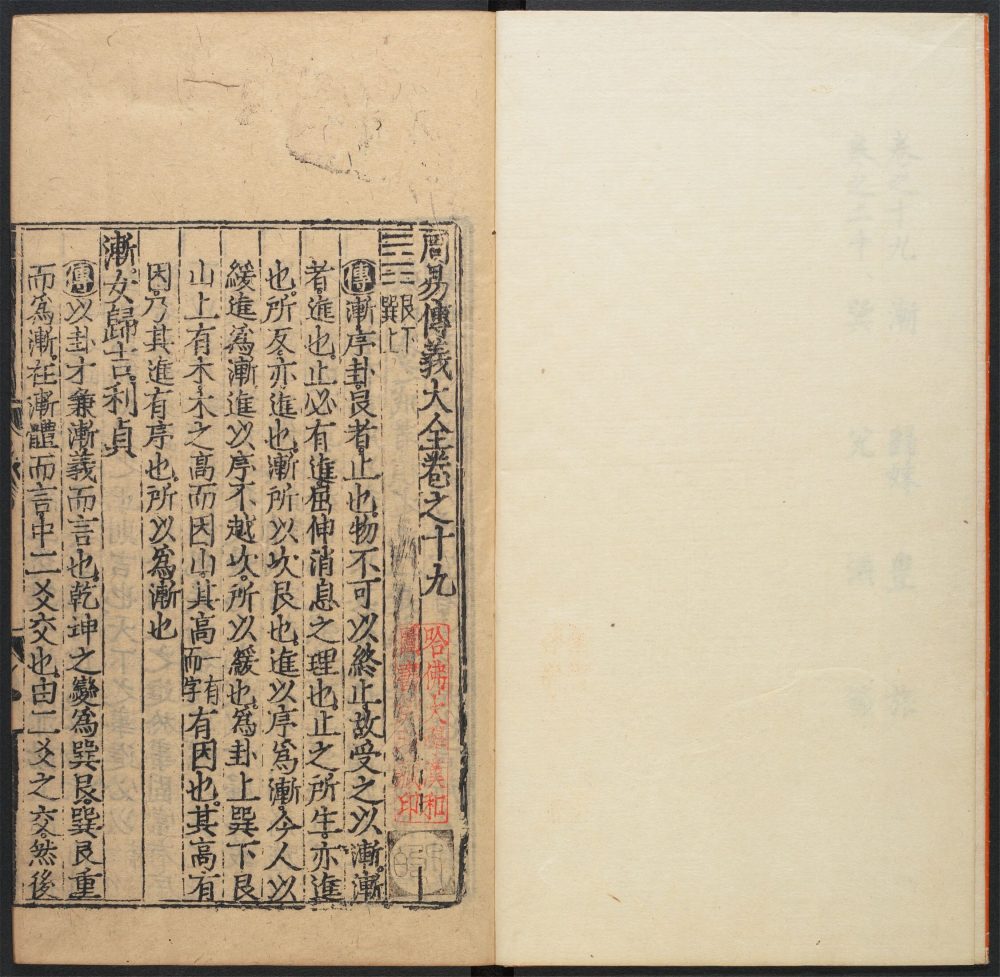 周易傳義大全卷之十九
☶☴艮下巽上
傳漸序卦艮者止也物不可以終止故受之以漸漸
者進也止必有進屈伸消息之理也止之所生亦進
也所反亦進也漸所以次艮也進以序爲漸今人以
緩進爲漸進以序不越次所以緩也爲卦上巽下艮
山上有木木之高而因山其高一有而字有因也其高有
因乃其進有序也所以爲漸也
漸女歸吉利貞
傳以卦才兼漸義而言也乾坤之變爲巽艮巽艮重
而爲漸在漸體而言中二爻交也由二爻之交然後
哈佛大學漢和圖書館印